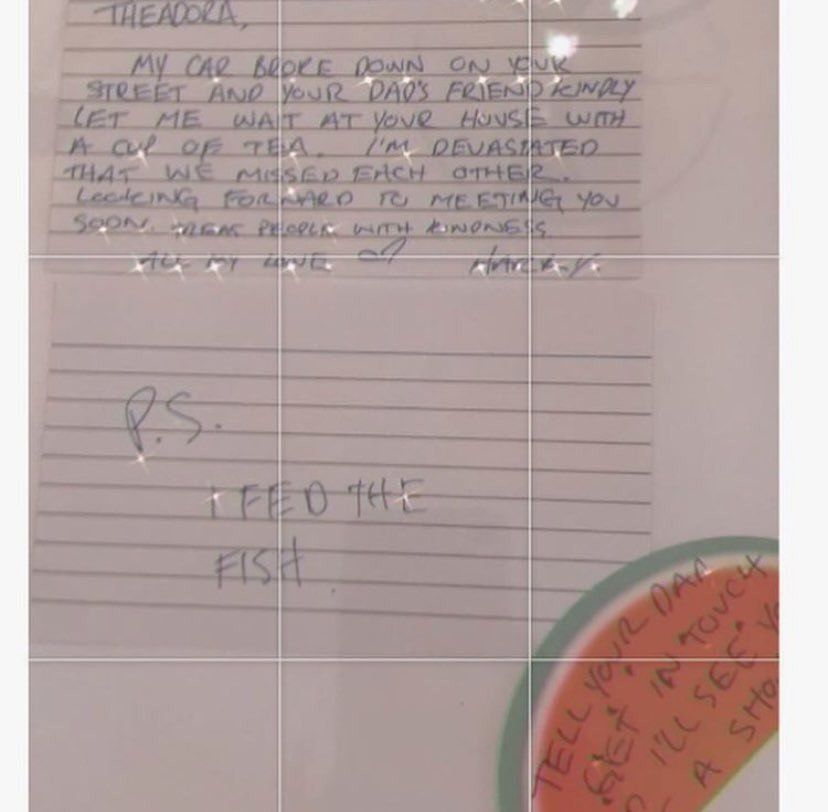 THEADORA,
MY CAR BROKE DOWN ON YOUR
STREET AND YOUR DAD'S FRIEND KINDLY
LET ME WAIT AT YOUR HOUSE WITH
A CUP OF TEA. I'M DEVASTATED
THAT WE MISSED EACH OTHER.
LOOKING FORWARD TO MEETING YOU
SOON. TREAT PEOPLE WITH KINDNESS
ALL MY LOVE HARRY.
P.S.
I FED THE
FISH.
TELL YOUR DAD
GET IN TOUCH
I'LL SEE
A SHO